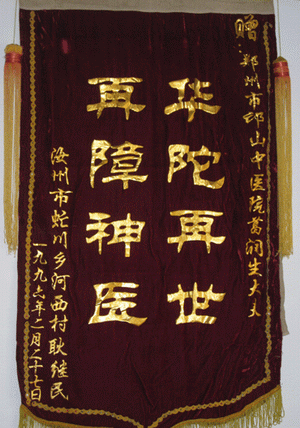 赠:郑州市邙山中医院葛润生大夫
华陀再世
再障神医
汝州市虻川乡河西村耿继民
一九九六年二月二十七日